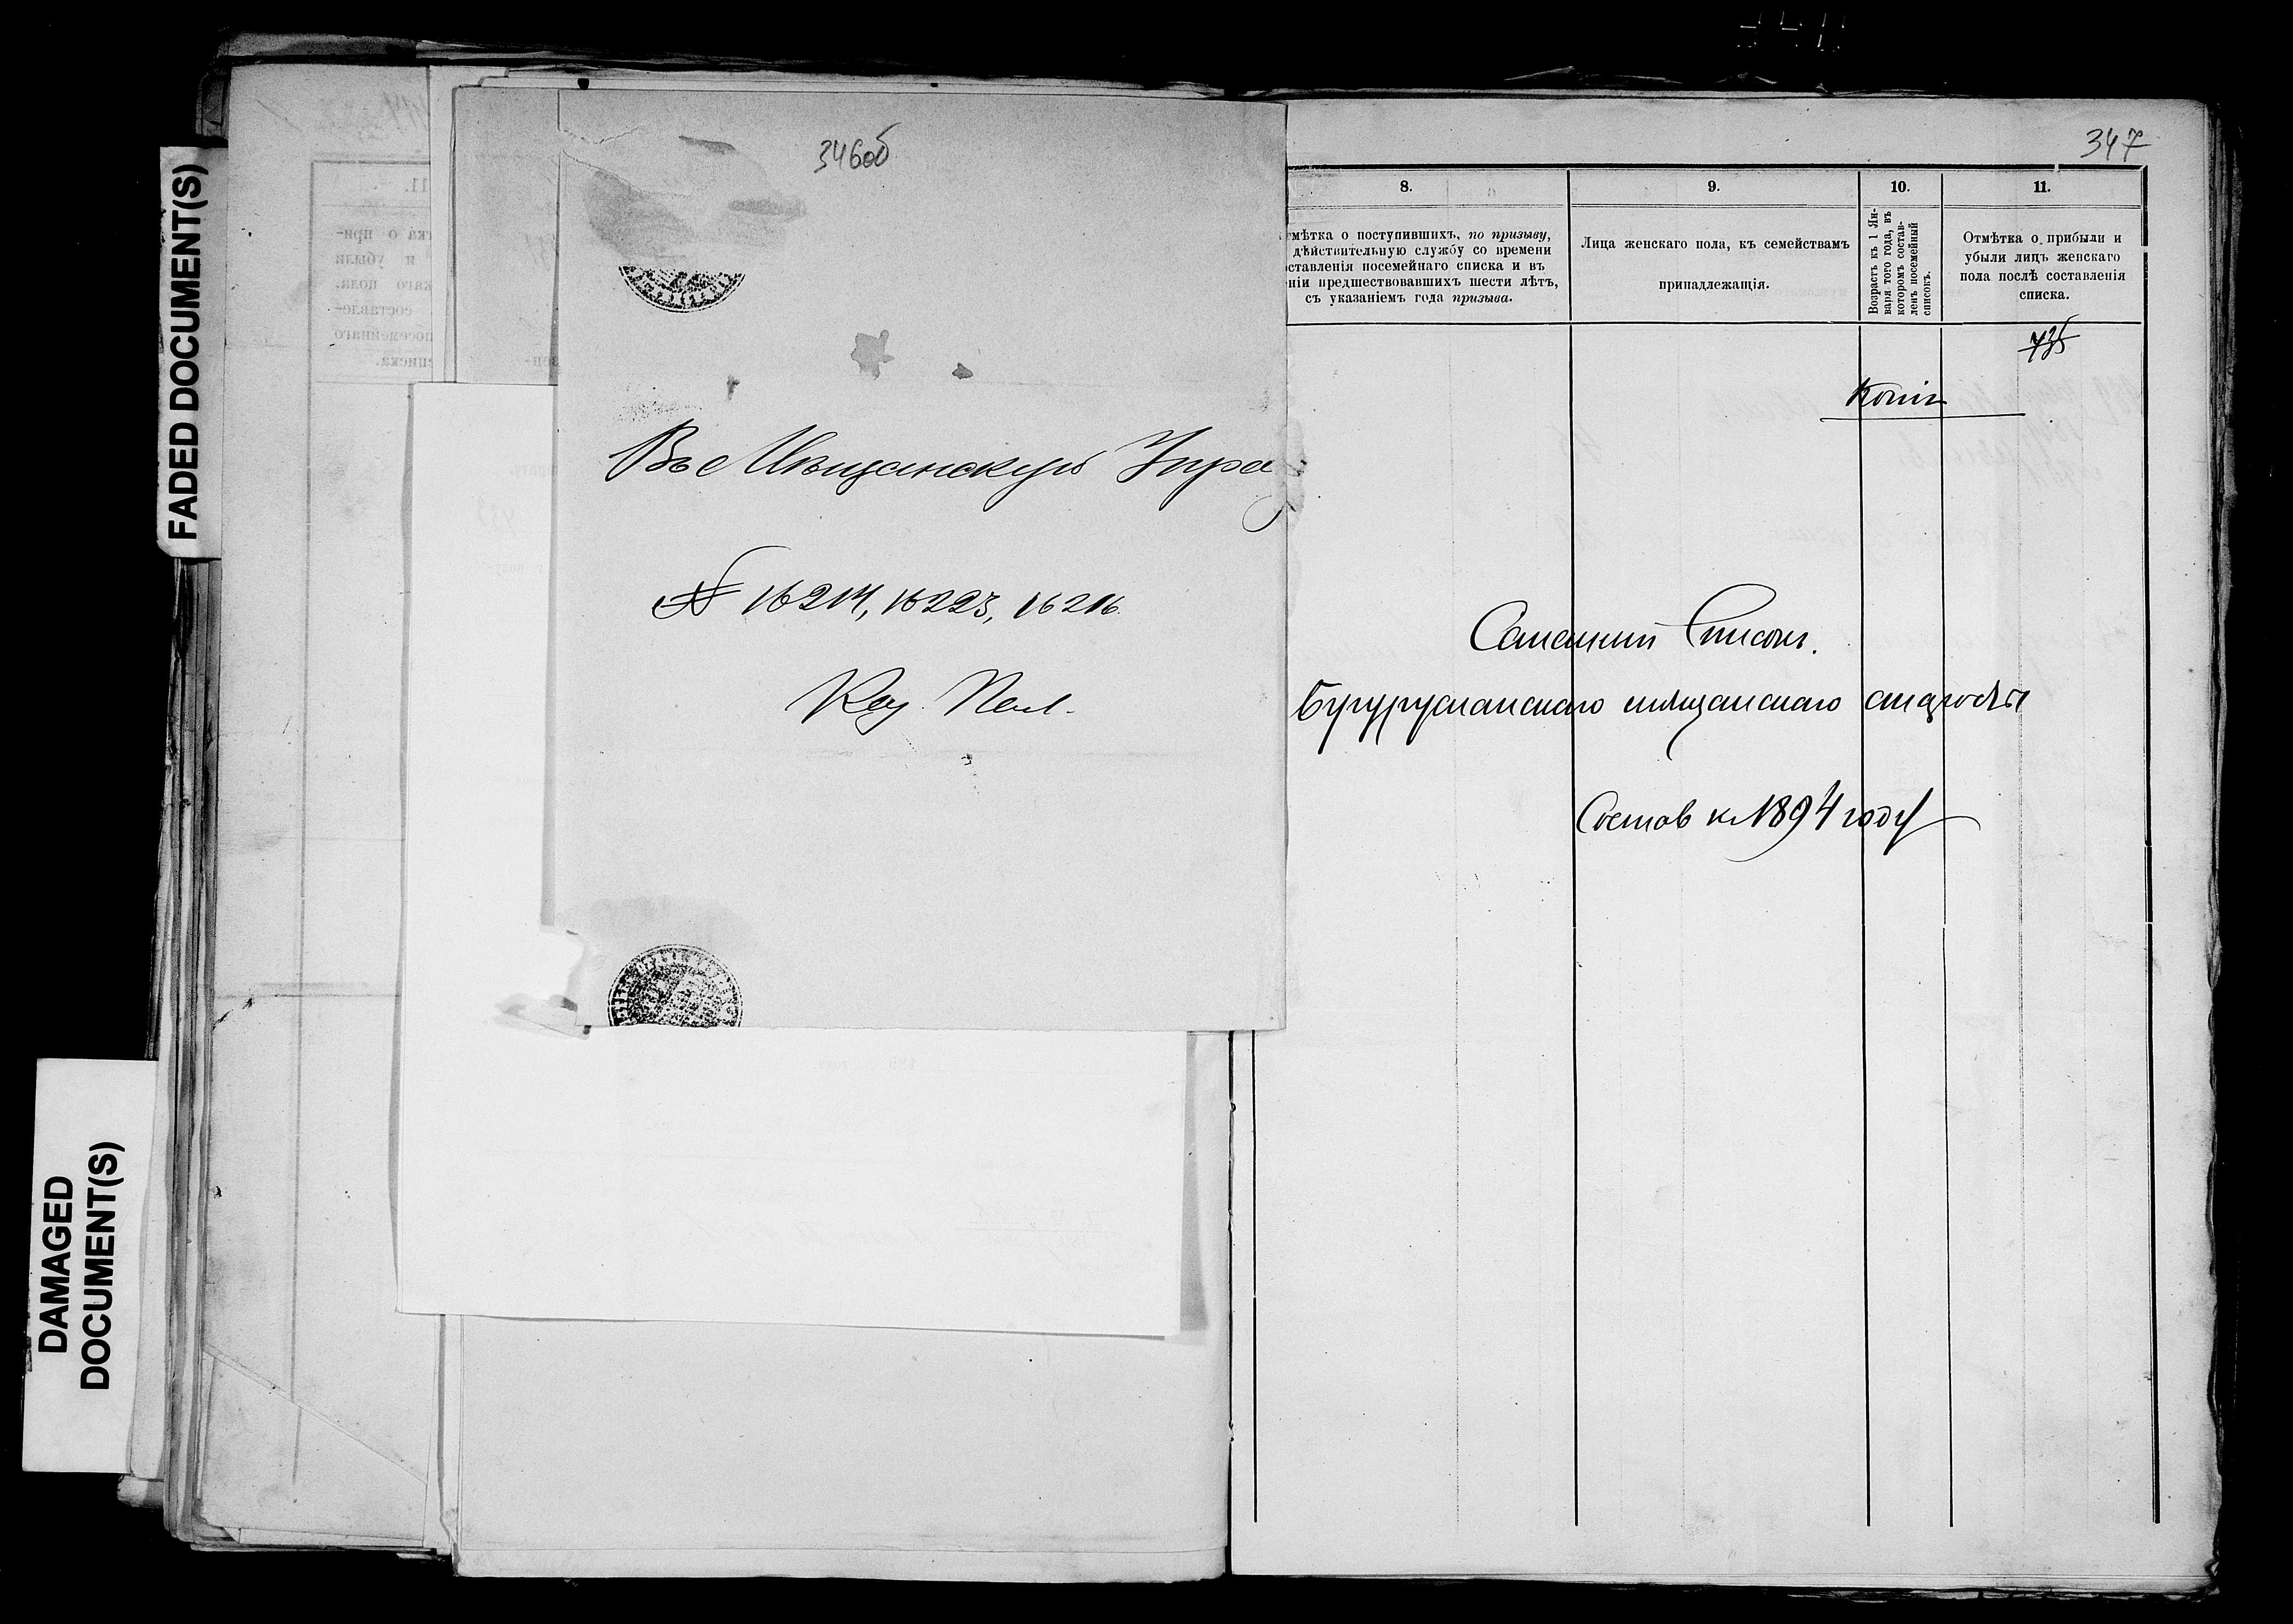 FADED DOCUMENT(S)
DAMAGED
DOCUMENT(S)
346об
Въ Мѣщанскую Упра
№ 16214, 16223, 16216
Каз. Пал.
347
8.
9.
10.
11.
тмѣтка о поступившихъ, по призыву,
дѣйствительную службу со времени
оставленія посемейнаго списка и въ
ніи предшествовавшихъ шести лѣтъ,
съ указаніемъ года призыва.
Лица женскаго пола, къ семействамъ
принадлежащія.
Возрастъ къ 1 Ян-
варя того года, въ
которомъ состав-
ленъ посемейный
списокъ.
Отмѣтка о прибыли и
убыли лицъ женскаго
пола послѣ составленія
списка.
735
Копія
Семейный Списокъ.
Бугурусланскаго мѣщанскаго старосты
Состав к 1894 году